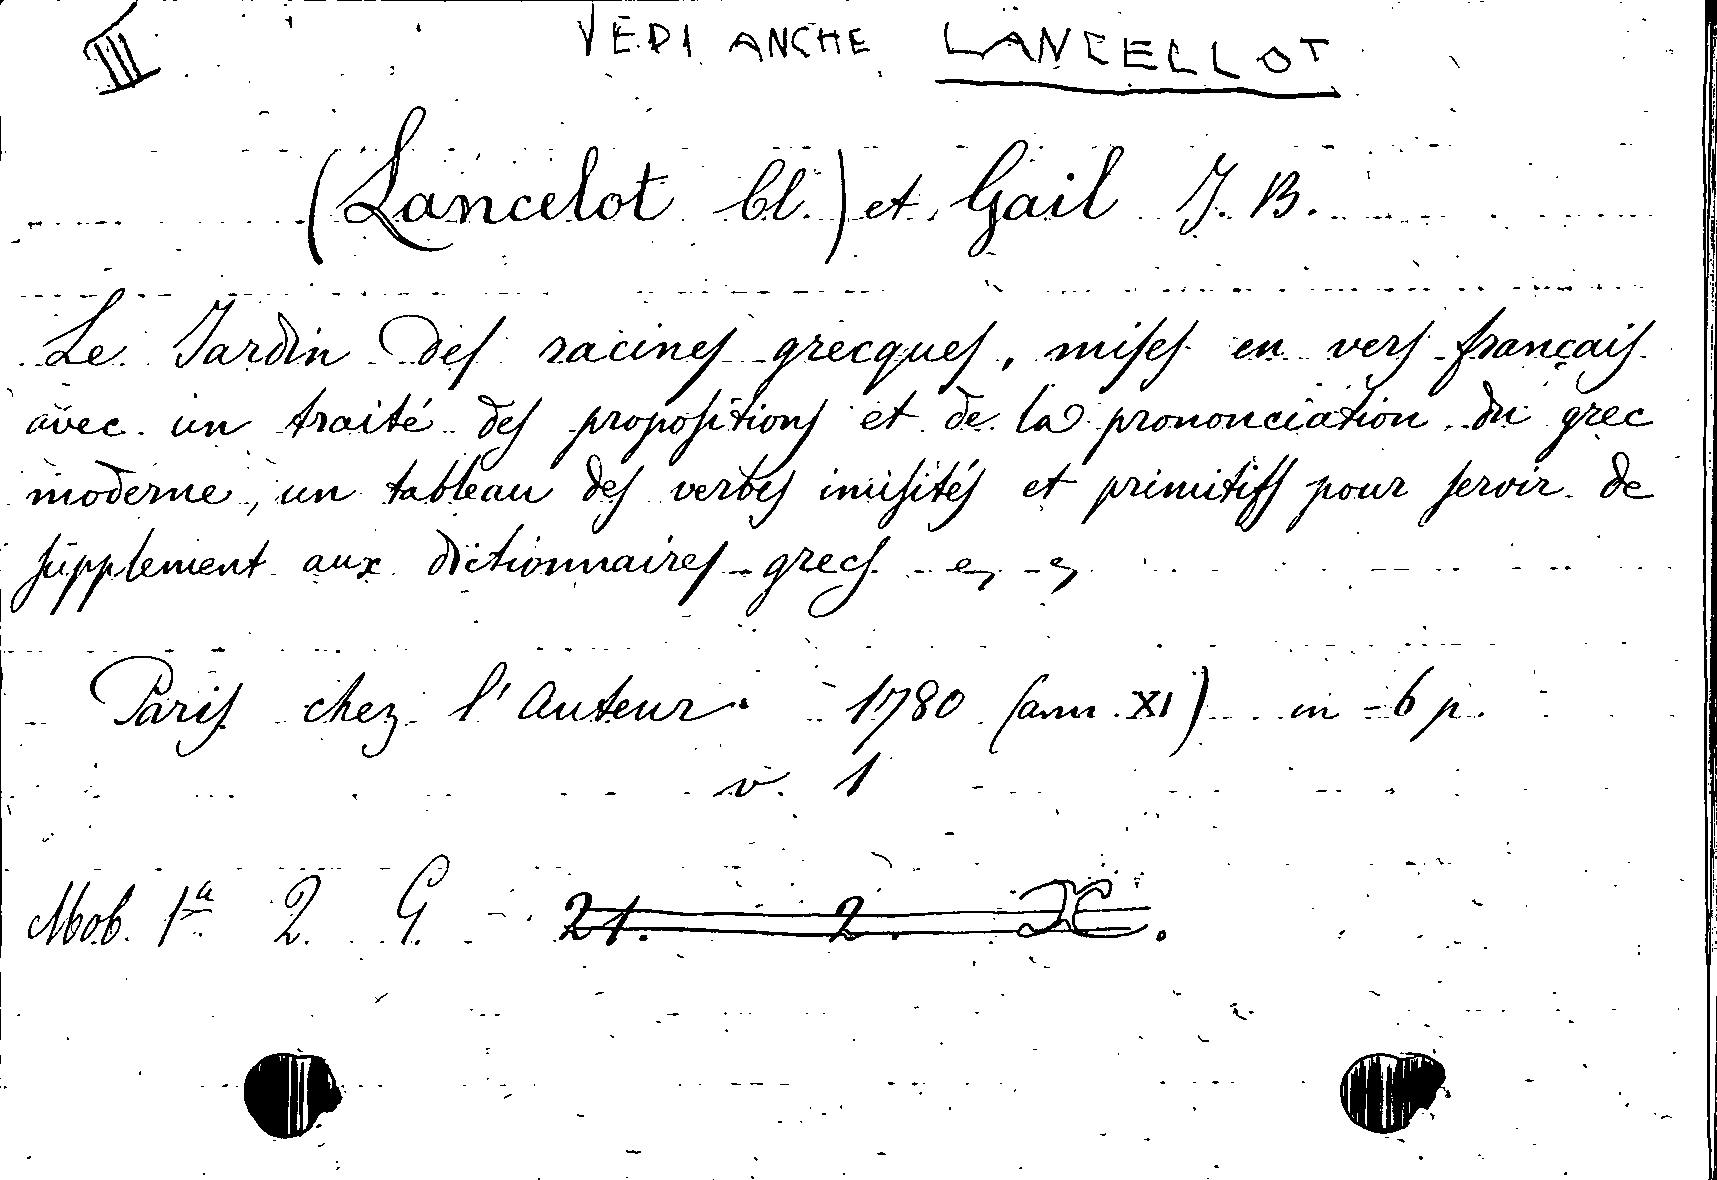 III
VEDI ANCHE LANCELLOT
(Lancelot Cl.) et Gail J. B.
Le Jardin des racines grecques, mises en vers français
avec un traité des propositions et de la prononciation du grec
moderne, un tableau des verbes inusités et primitifs pour servir de
supplement aux dictionnaires grecs
Paris chez l'Auteur. 1780 (ann. XI) in-6 p.
v. 1
Mob. 1a 2. G. 21. 2.